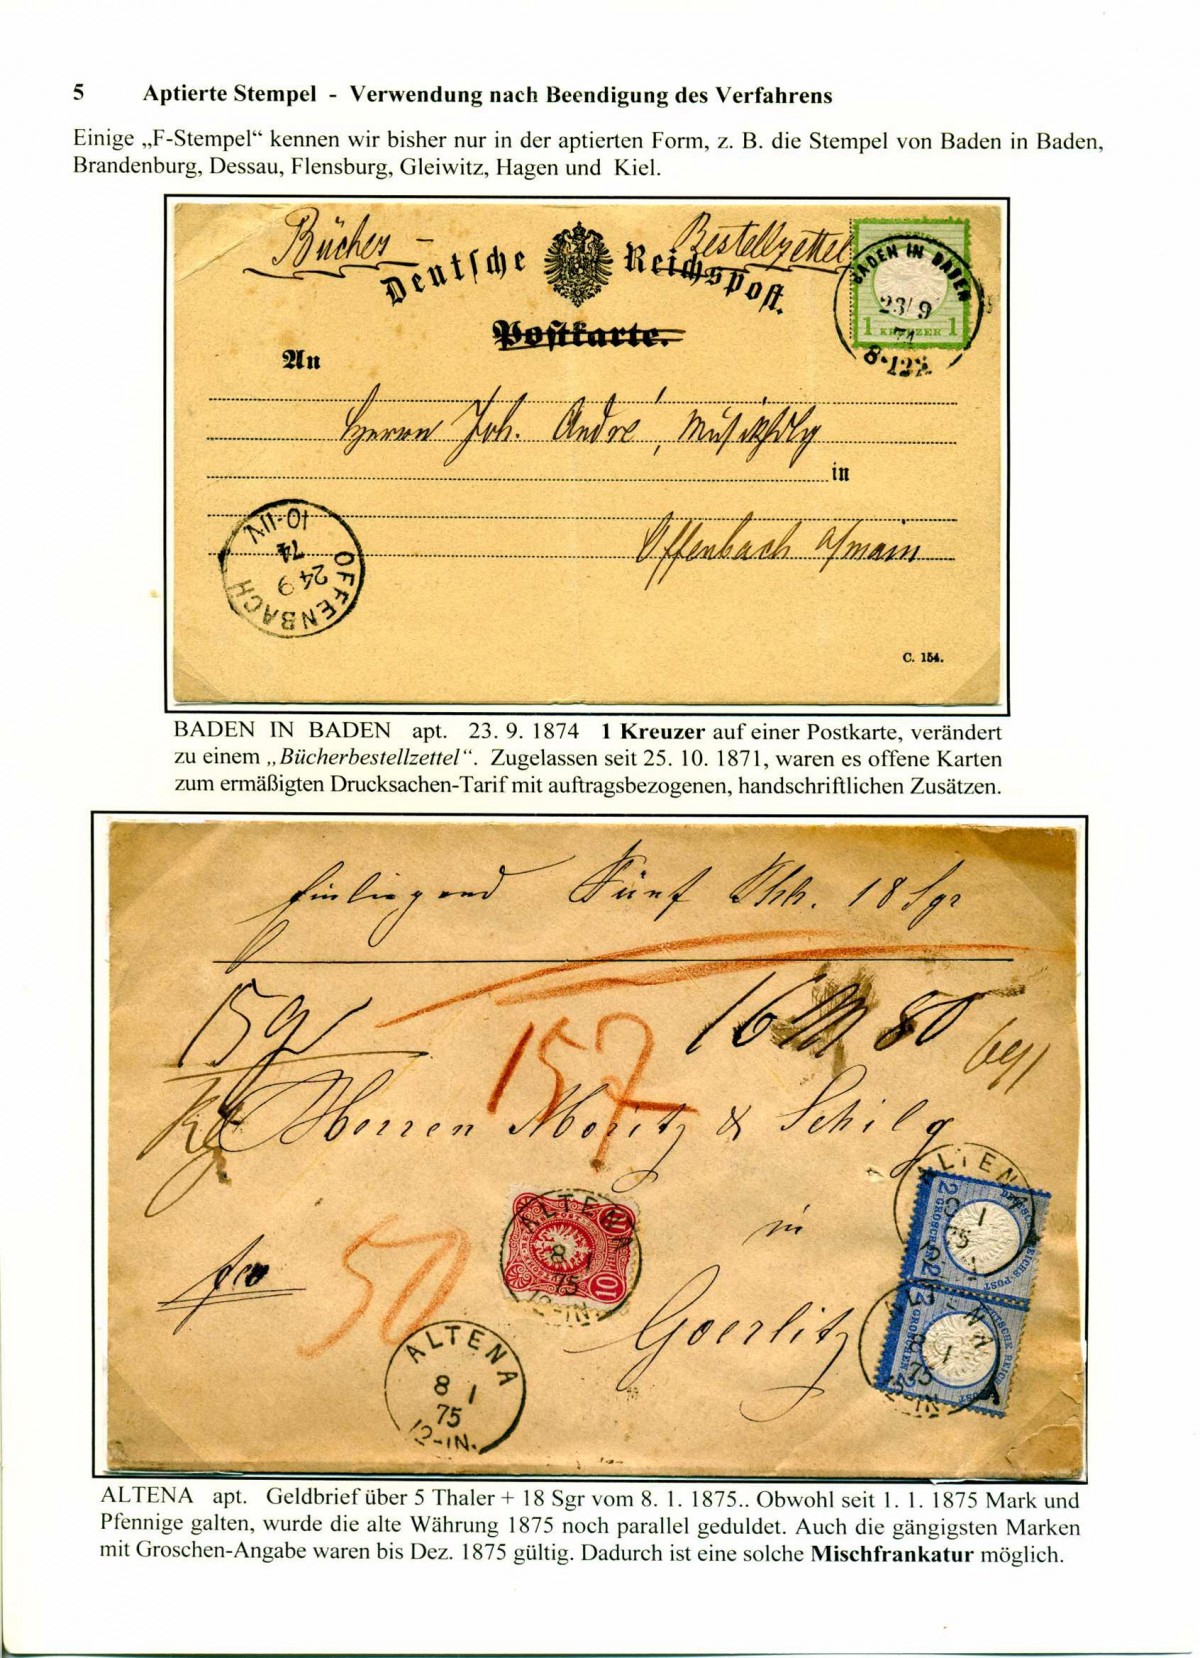 5 Aptierte Stempel - Verwendung nach Beendigung des Verfahrens
Einige „F-Stempel“ kennen wir bisher nur in der aptierten Form, z. B. die Stempel von Baden in Baden,
Brandenburg, Dessau, Flensburg, Gleiwitz, Hagen und Kiel.
Bücher - Bestellzettel
Deutsche Reichspost.
Postkarte.
BADEN IN BADEN
23/ 9
74
8-12V.
1 KREUZER 1
An
Herrn Joh. André, Musikhdlg
in
Offenbach a/main
OFFENBACH
24 9
74
10-11V
C. 154.
BADEN IN BADEN apt. 23. 9. 1874 1 Kreuzer auf einer Postkarte, verändert
zu einem „Bücherbestellzettel“. Zugelassen seit 25. 10. 1871, waren es offene Karten
zum ermäßigten Drucksachen-Tarif mit auftragsbezogenen, handschriftlichen Zusätzen.
Einliegend Fünf Thlr. 18 Sgr
15 gr
16 M 80
157
Herren Moritz & Schilg
in
fco
50
Goerlitz
ALTENA
8 1
75
12-1N.
10 10
ALTENA
8 1
75
12-1N.
ALTENA
8 1
75
12-1N.
2 GROSCHEN 2
DEUTSCHE REICHS-POST
ALTENA
8 1
75
12-1N.
2 GROSCHEN
DEUTSCHE REICHS-POST
ALTENA apt. Geldbrief über 5 Thaler + 18 Sgr vom 8. 1. 1875.. Obwohl seit 1. 1. 1875 Mark und
Pfennige galten, wurde die alte Währung 1875 noch parallel geduldet. Auch die gängigsten Marken
mit Groschen-Angabe waren bis Dez. 1875 gültig. Dadurch ist eine solche Mischfrankatur möglich.